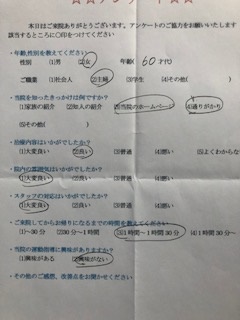 ☆☆アンケート☆☆
本日はご来院ありがとうございます。アンケートのご協力をお願いいたします
該当するところに○印をつけてください
・年齢,性別を教えてください
性別 (1)男 (2)女 年齢( 60才代)
ご職業 (1)社会人 (2)主婦 (3)学生 (4)その他( )
・当院を知ったきっかけは何ですか?
(1)家族の紹介 (2)知人の紹介 (3)当院のホームページ (4)通りがかり
(5)その他( )
・治療内容はいかがでしたか?
(1)大変良い (2)良い (3)普通 (4)悪い (5)よくわからな
・院内の雰囲気はいかがでしたか?
(1)大変良い (2)良い (3)普通 (4)悪い
・スタッフの対応はいかがでしたか?
(1)大変良い (2)良い (3)普通 (4)悪い
・ご来院してからお帰りになるまでの時間を教えてください
(1)～30分 (2)30分～1時間 (3)1時間～1時間30分 (4)1時間30分～
・当院の運動指導に興味がありますか?
(1)興味がある (2)興味がない
・その他のご感想、改善点をお聞かせください